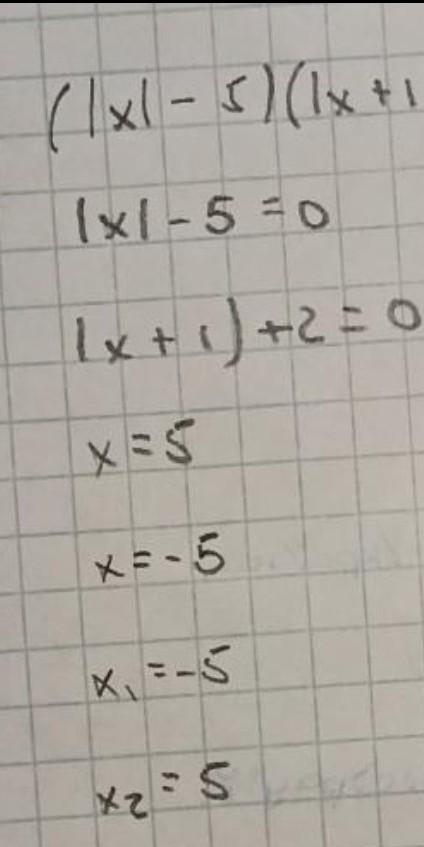 (|x| - 5)(|x + 1
|x| - 5 = 0
|x + 1| + 2 = 0
x = 5
x = -5
x₁ = -5
x₂ = 5